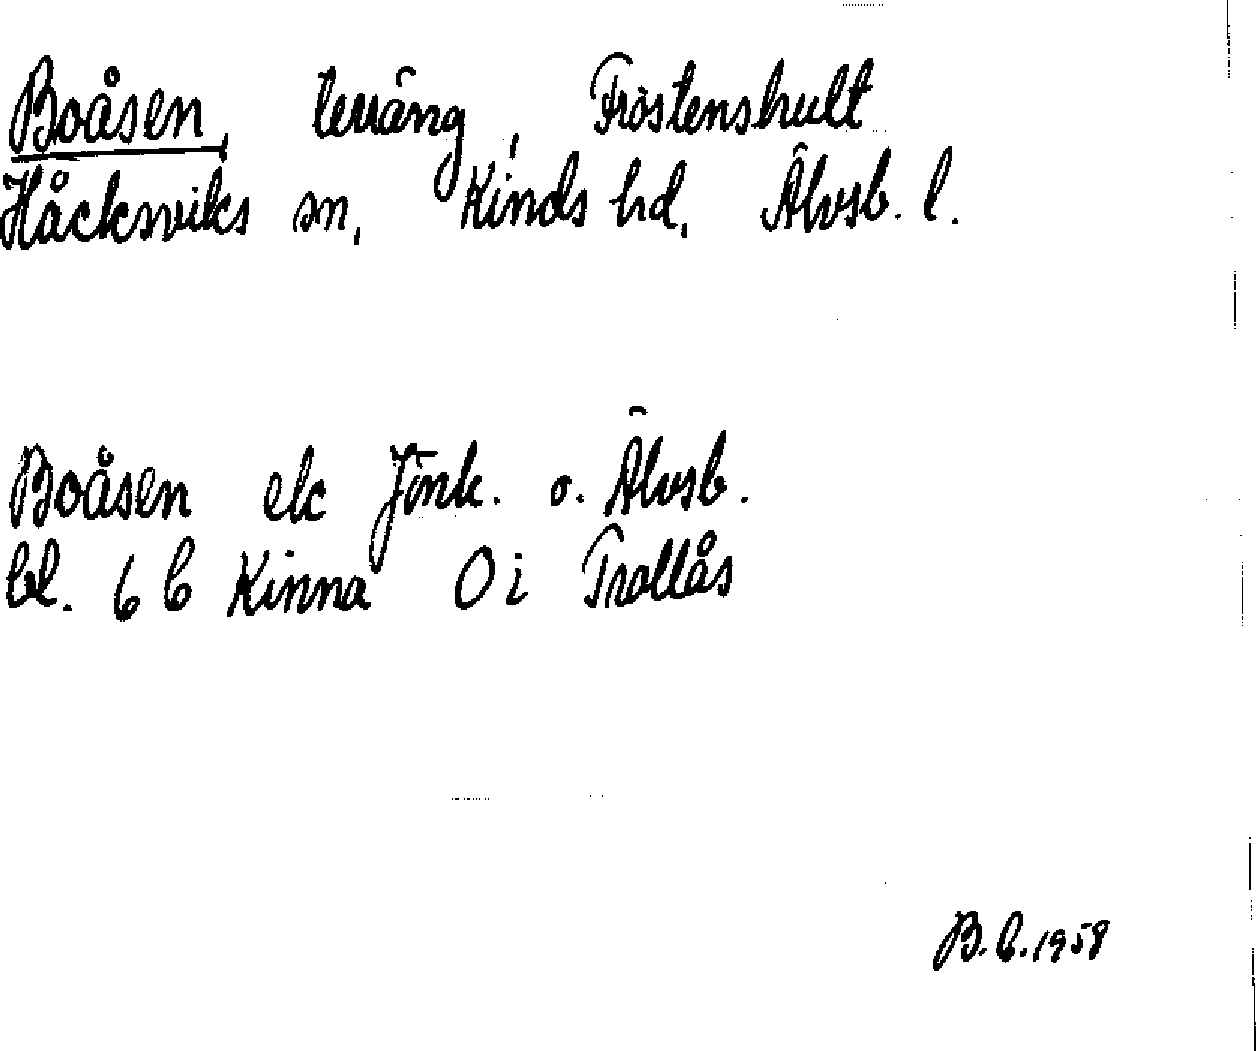 Boåsen, terräng, Fröstenshult
Håcksviks sn, Kinds hd, Älvsb. l.
Boåsen ek Jönk. o. Älvsb.
bl. 6 b Kinna O i Trollås
B. b. 1958